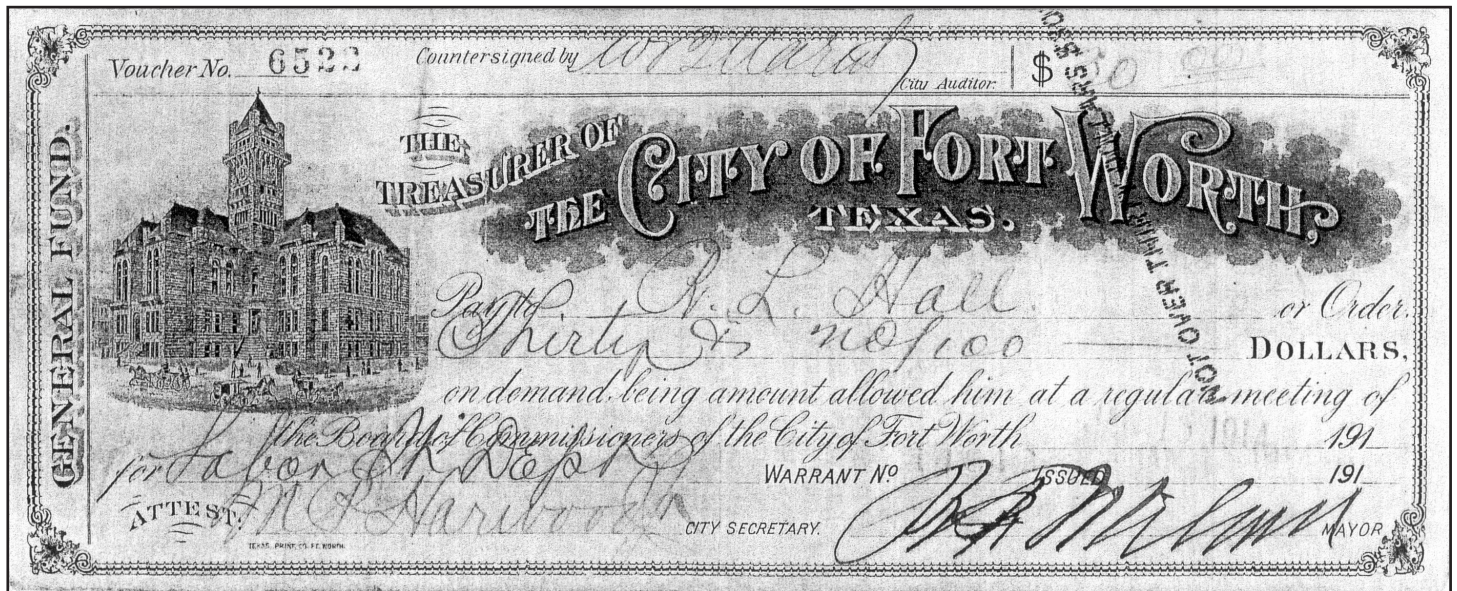 Voucher No. 6522 Countersigned by City Auditor. $ 30 00
GENERAL FUND.
THE
TREASURER OF
THE CITY OF FORT WORTH,
TEXAS.
NOT OVER THIRTY
Pay to R. L. Hall or Order.
Thirty & no/100 DOLLARS,
on demand, being amount allowed him at a regular meeting of
the Board of Commissioners of the City of Fort Worth 1914 191
for Labor Dept WARRANT No ISSUED 191
ATTEST: M P Harwood CITY SECRETARY. MAYOR
TEXAS PRINT. CO. FT. WORTH.